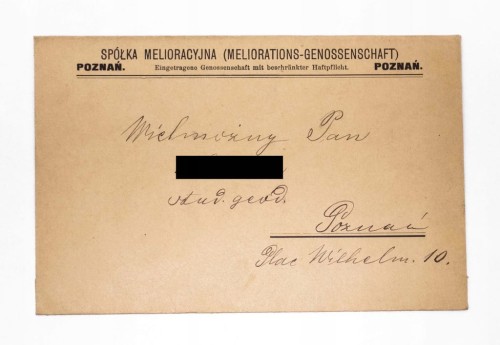 SPÓŁKA MELIORACYJNA (MELIORATIONS-GENOSSENSCHAFT)
POZNAŃ. Eingetragene Genossenschaft mit beschränkter Haftpflicht. POZNAŃ.
Wielmożny Pan
stud. geod.
Poznań
Plac Wilhelm. 10.